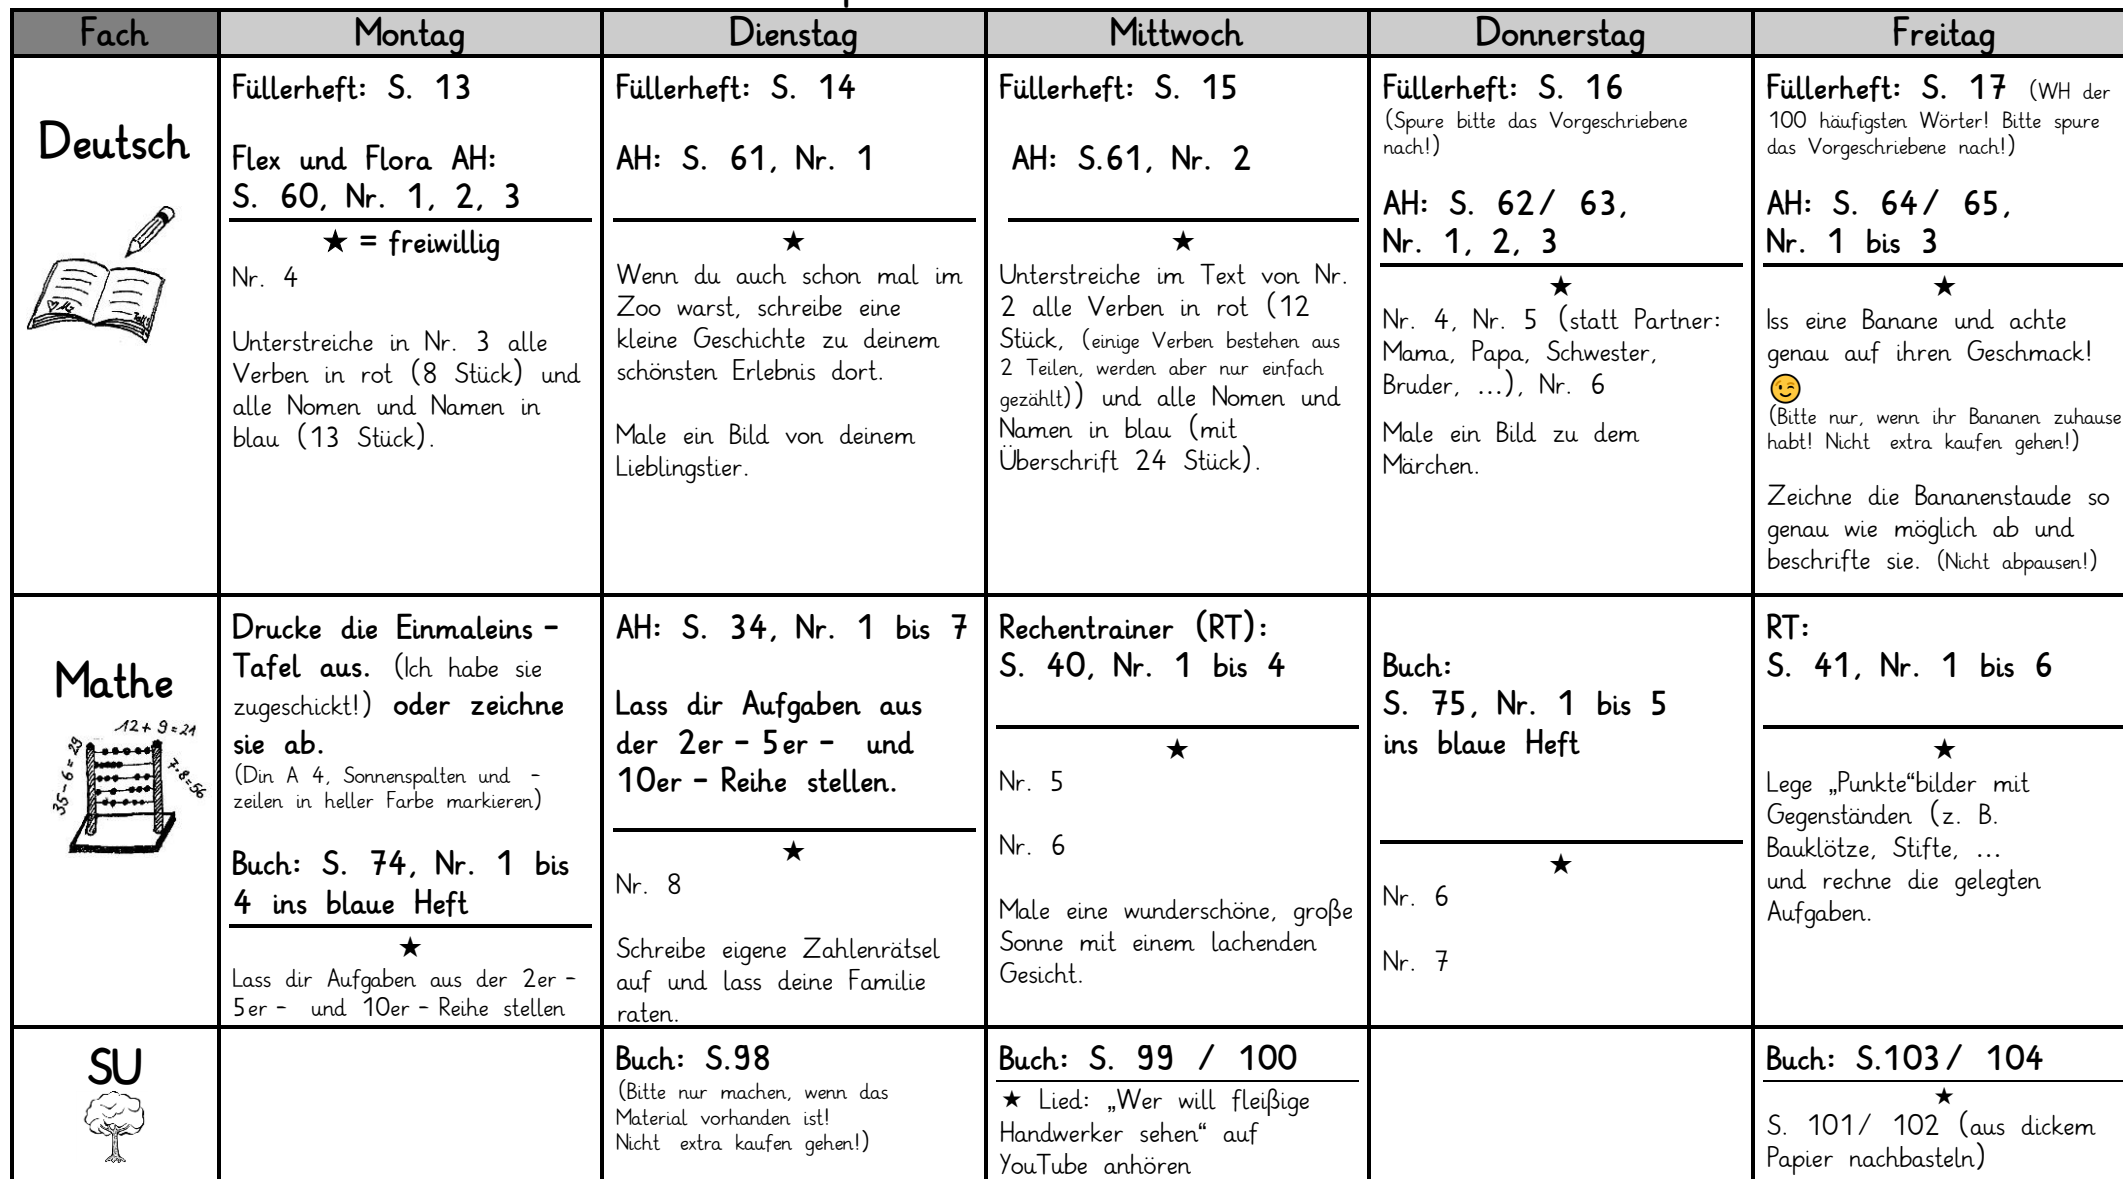 Fach
Montag
Dienstag
Mittwoch
Donnerstag
Freitag
Deutsch
Füllerheft: S. 13
Flex und Flora AH:
S. 60, Nr. 1, 2, 3
★ = freiwillig
Nr. 4
Unterstreiche in Nr. 3 alle
Verben in rot (8 Stück) und
alle Nomen und Namen in
blau (13 Stück).
Füllerheft: S. 14
AH: S. 61, Nr. 1
★
Wenn du auch schon mal im
Zoo warst, schreibe eine
kleine Geschichte zu deinem
schönsten Erlebnis dort.
Male ein Bild von deinem
Lieblingstier.
Füllerheft: S. 15
AH: S.61, Nr. 2
★
Unterstreiche im Text von Nr.
2 alle Verben in rot (12
Stück, (einige Verben bestehen aus
2 Teilen, werden aber nur einfach
gezählt)) und alle Nomen und
Namen in blau (mit
Überschrift 24 Stück).
Füllerheft: S. 16
(Spure bitte das Vorgeschriebene
nach!)
AH: S. 62/ 63,
Nr. 1, 2, 3
★
Nr. 4, Nr. 5 (statt Partner:
Mama, Papa, Schwester,
Bruder, ...), Nr. 6
Male ein Bild zu dem
Märchen.
Füllerheft: S. 17 (WH der
100 häufigsten Wörter! Bitte spure
das Vorgeschriebene nach!)
AH: S. 64/ 65,
Nr. 1 bis 3
★
Iss eine Banane und achte
genau auf ihren Geschmack!
😉
(Bitte nur, wenn ihr Bananen zuhause
habt! Nicht extra kaufen gehen!)
Zeichne die Bananenstaude so
genau wie möglich ab und
beschrifte sie. (Nicht abpausen!)
Mathe
12 + 9 = 21
35 - 6 = 29
7·8=56
Drucke die Einmaleins –
Tafel aus. (Ich habe sie
zugeschickt!) oder zeichne
sie ab.
(Din A 4, Sonnenspalten und -
zeilen in heller Farbe markieren)
Buch: S. 74, Nr. 1 bis
4 ins blaue Heft
★
Lass dir Aufgaben aus der 2er –
5er – und 10er – Reihe stellen
AH: S. 34, Nr. 1 bis 7
Lass dir Aufgaben aus
der 2er – 5er – und
10er – Reihe stellen.
★
Nr. 8
Schreibe eigene Zahlenrätsel
auf und lass deine Familie
raten.
Rechentrainer (RT):
S. 40, Nr. 1 bis 4
★
Nr. 5
Nr. 6
Male eine wunderschöne, große
Sonne mit einem lachenden
Gesicht.
Buch:
S. 75, Nr. 1 bis 5
ins blaue Heft
★
Nr. 6
Nr. 7
RT:
S. 41, Nr. 1 bis 6
★
Lege „Punkte“bilder mit
Gegenständen (z. B.
Bauklötze, Stifte, ...
und rechne die gelegten
Aufgaben.
SU
Buch: S.98
(Bitte nur machen, wenn das
Material vorhanden ist!
Nicht extra kaufen gehen!)
Buch: S. 99 / 100
★ Lied: „Wer will fleißige
Handwerker sehen“ auf
YouTube anhören
Buch: S.103/ 104
★
S. 101/ 102 (aus dickem
Papier nachbasteln)